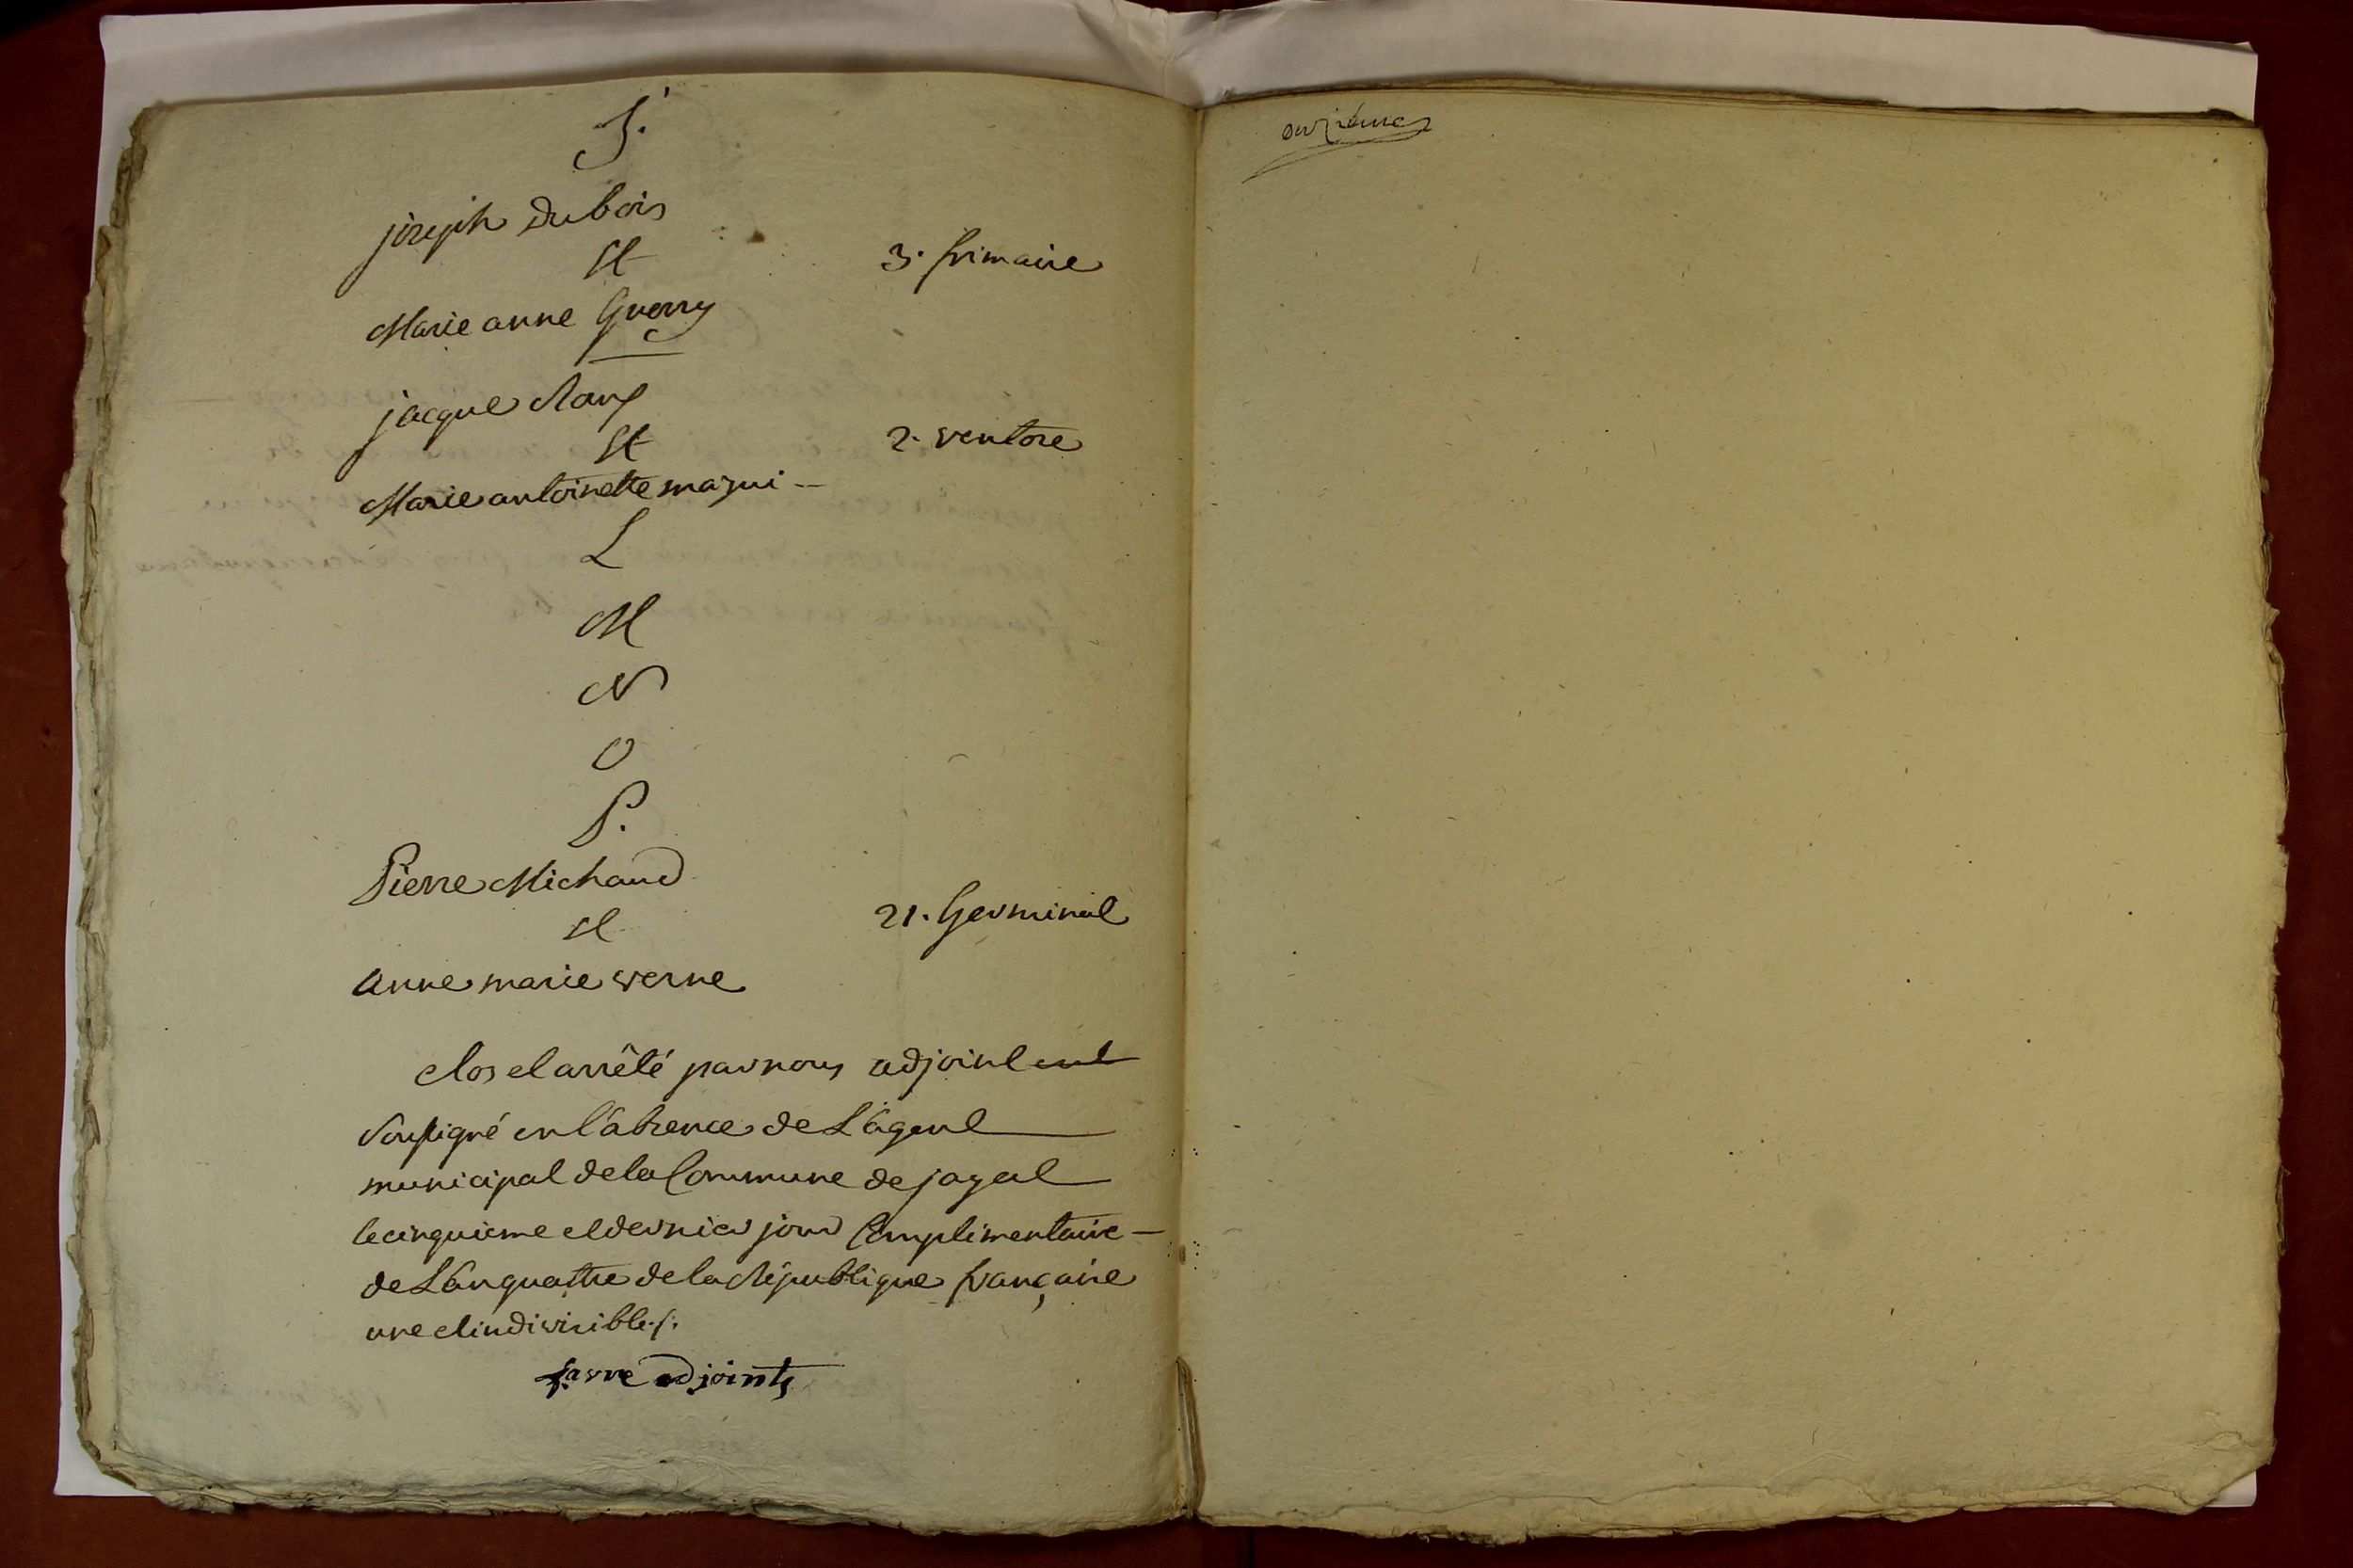 J.
joseph dubois
Et
3. frimaire
Marie anne Guerry
jacque
Et
2. ventose
Marie antoinette
L
M
N
O
P.
Pierre Michaud
et
21. Germinal
anne marie verne
clos et arrêté par nous adjoint
soussigné en l'absence de L'agent
municipal de la Commune de jayat
le cinquieme et dernier jour Complimentaire
de L'an quattre de la République française
une et indivisible ./.
favre adjoint
onzième